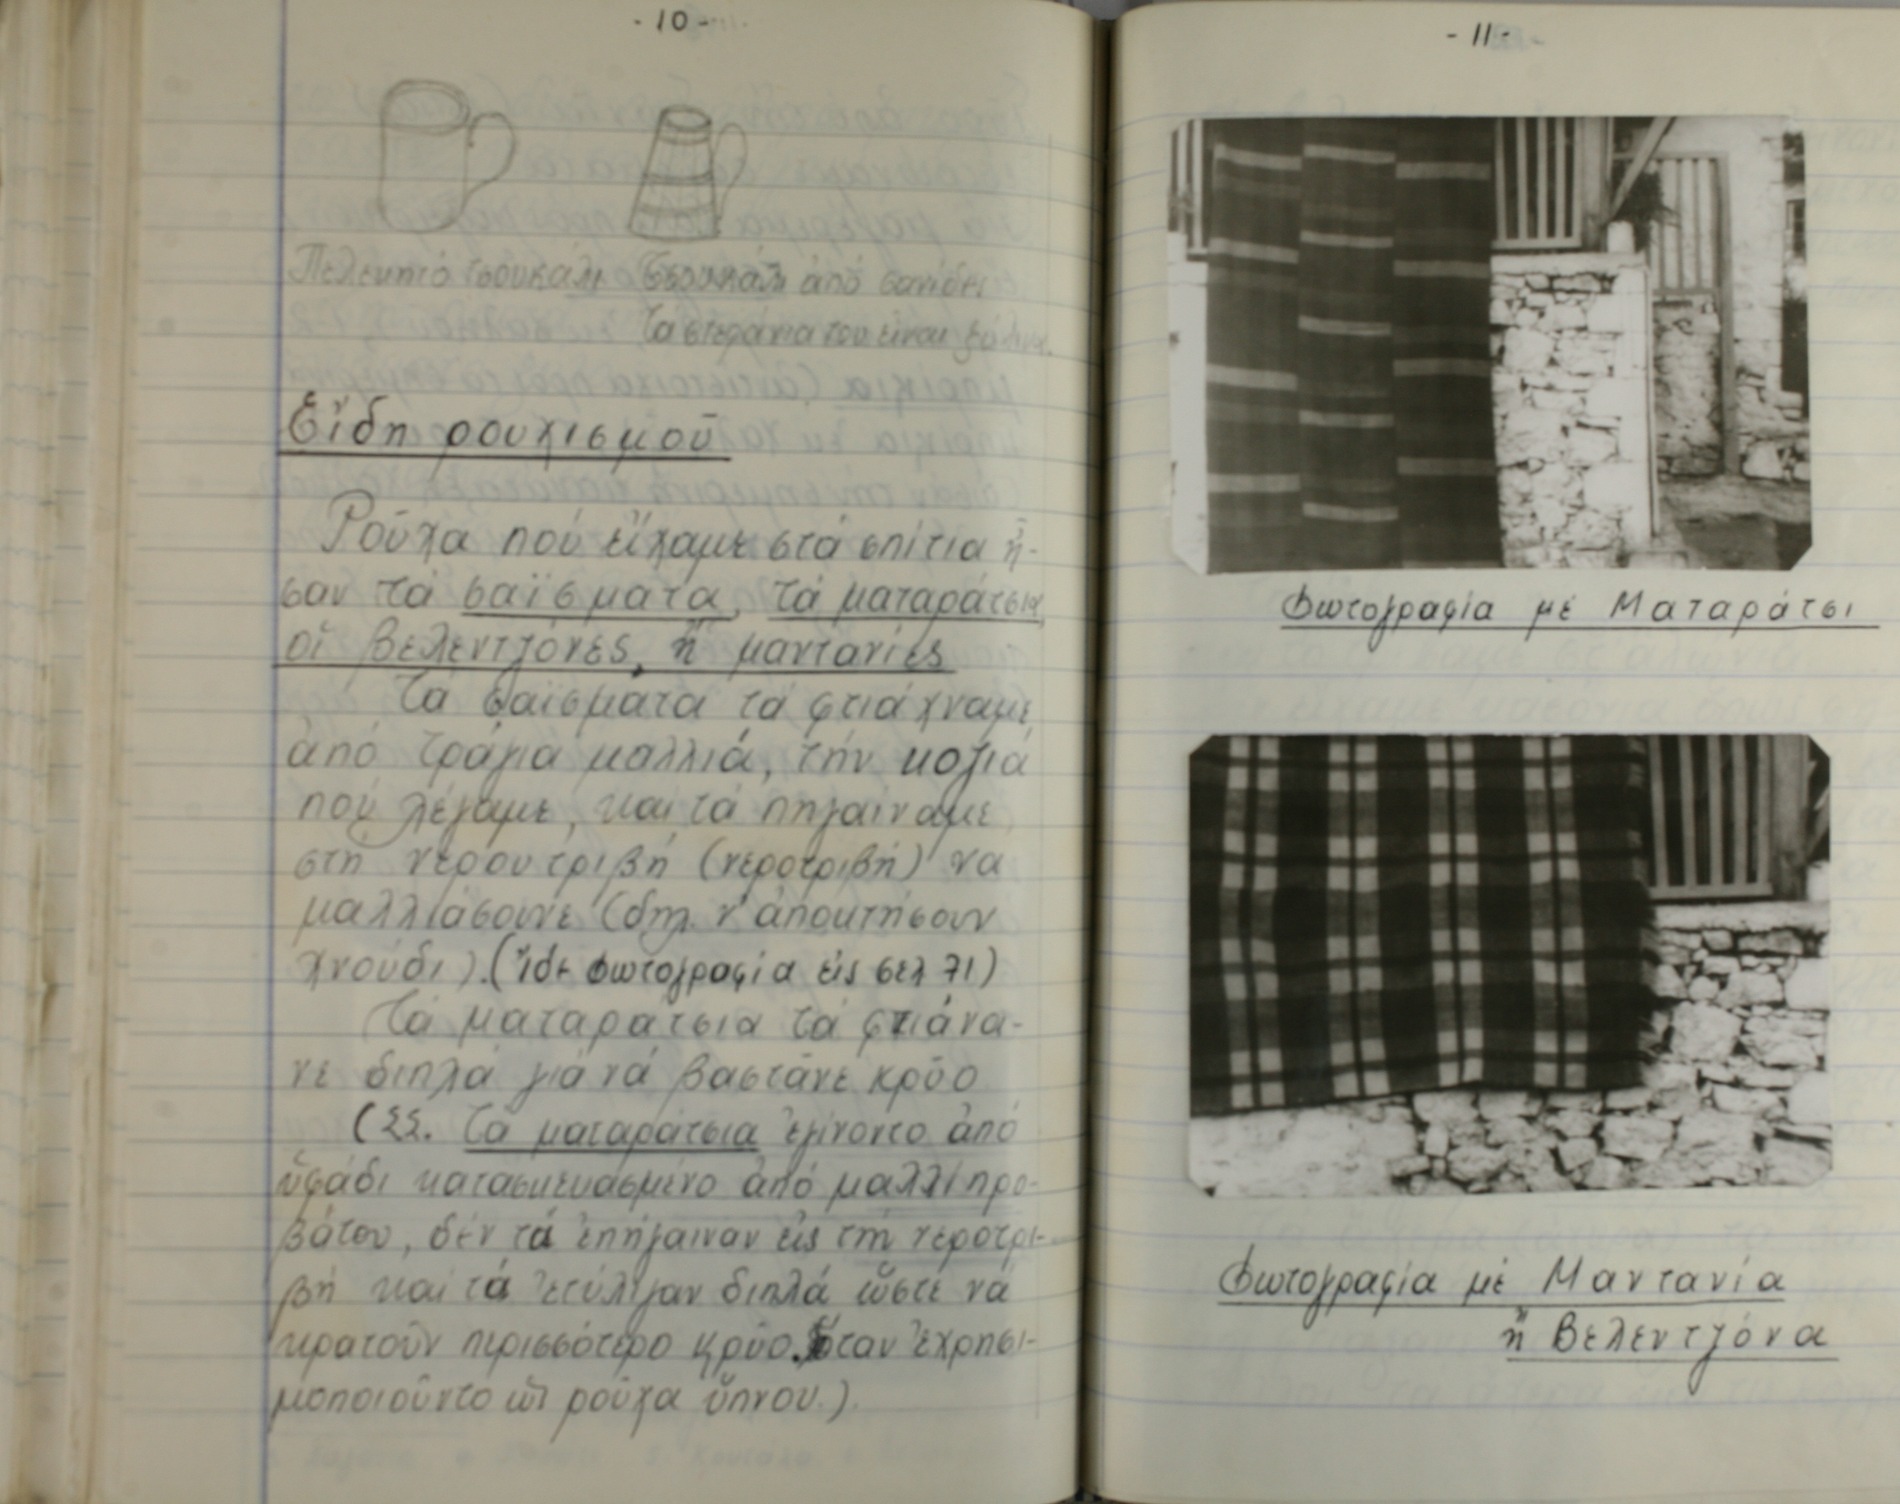 - 10 -
Πελεκητό τσουκάλι Τσουκάλι ἀπό σανίδες
Τα στεφάνια του εἶναι ξύλινα.
Εἴδη ρουχισμοῦ
Ροῦχα πού εἴχαμε στά σπίτια ἤ-
σαν τά σαΐσματα, τά ματαράτσια
οἱ βελεντζόνες, ἤ μαντανίες
Τά σαΐσματα τά φτιάχναμε
ἀπό τράγια μαλλιά, τήν κοζιά
πού λέγαμε, καί τά πηγαίναμε
στη νερουτριβή (νεροτριβή) να
μαλλιάσουνε (δηλ. ν' ἀποκτήσουν
χνούδι). (ἴδε φωτογραφία εἰς σελ 71)
Τά ματαράτσια τά φτιάνα-
νε διπλά γιά νά βαστᾶνε κρῦο
(ΣΣ. Τά ματαράτσια ἐγίνοντο ἀπό
ὑφάδι κατασκευασμένο ἀπό μαλλί προ-
βάτου, δέν τά ἐπήγαιναν εἰς τήν νεροτρι-
βή καί τά ἐτύλιγαν διπλά ὥστε νά
κρατοῦν περισσότερο κρῦο. ὅταν ἐχρησι-
μοποιοῦντο ὡς ροῦχα ὕπνου.)
- 11 -
Φωτογραφία μέ Ματαράτσι
Φωτογραφία μέ Μαντανία
ἤ Βελεντζόνα